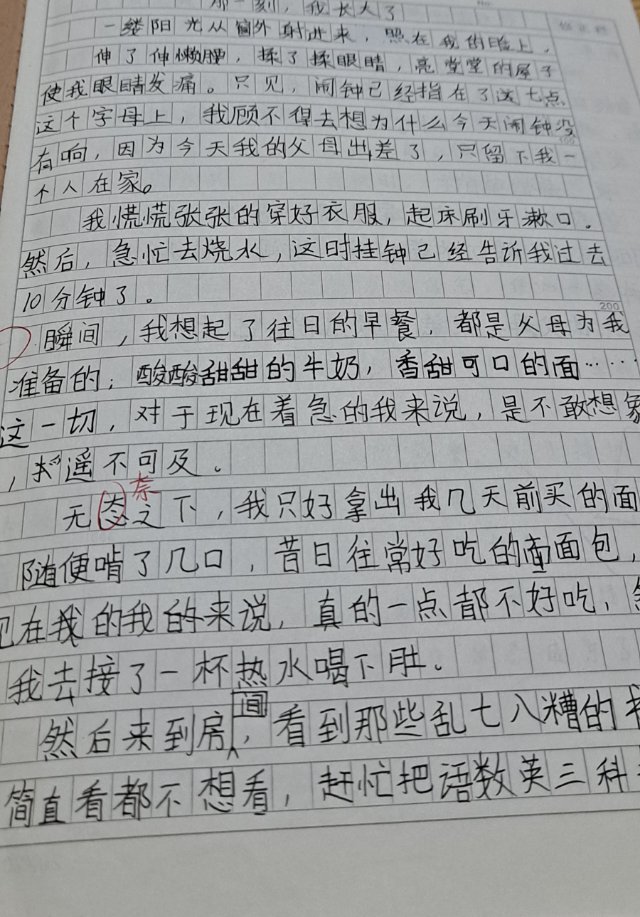 那一刻，我长大了
一缕阳光从窗外射进来，照在我的脸上，
伸了伸懒腰，揉了揉眼睛，亮堂堂的屋子
使我眼睛发痛。只见，闹钟已经指在了这七点
这个字母上，我顾不得去想为什么今天闹钟没
有响，因为今天我的父母出差了，只留下我一
个人在家。
我慌慌张张的穿好衣服，起床刷牙漱口。
然后，急忙去烧水，这时挂钟已经告诉我过去
10分钟了。
200
瞬间，我想起了往日的早餐，都是父母为我
准备的；酸酸甜甜的牛奶，香甜可口的面……
这一切，对于现在着急的我来说，是不敢想象
，遥不可及。
奈
无态之下，我只好拿出我几天前买的面
随便啃了几口，昔日往常好吃的面包，
现在我的我的来说，真的一点都不好吃，
我去接了一杯热水喝下肚。
然后来到房间，看到那些乱七八糟的
简直看都不想看，赶忙把语数英三科